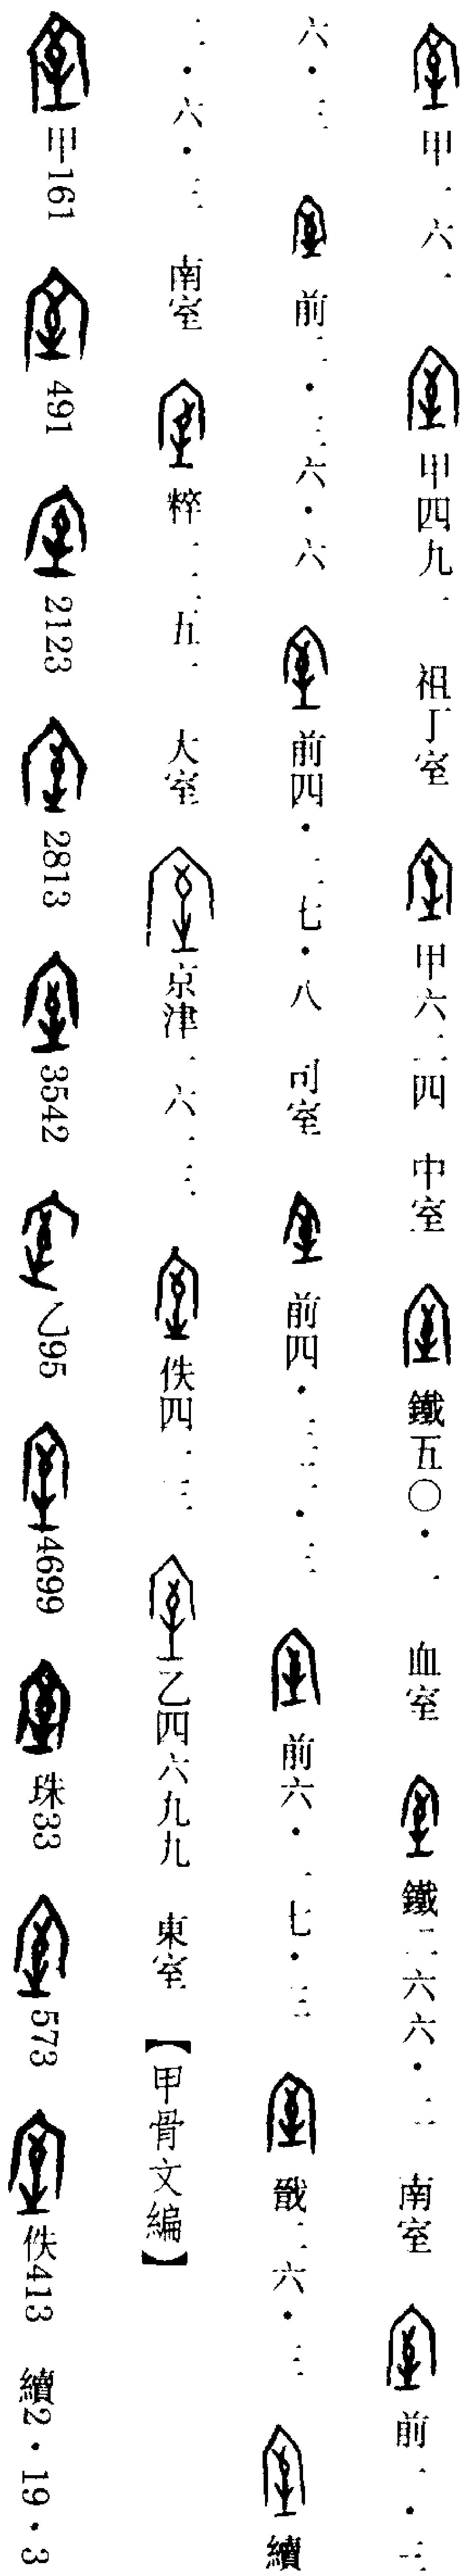 甲一六一 甲四九一 祖丁室 甲六二四 中室 鐵五〇·一 血室 鐵二六六·二 南室 前一·三
六·三 前二·三六·六 前四·二七·八 司室 前四· 前六·一七·三 戩二六·三 續
二·六·三 南室 粹一二五一 大室 京津 佚四一三 乙四六九九 東室 【甲骨文編】
甲161 491 2123 2813 3542 乙95 4699 珠33 573 佚413 續2·19·3